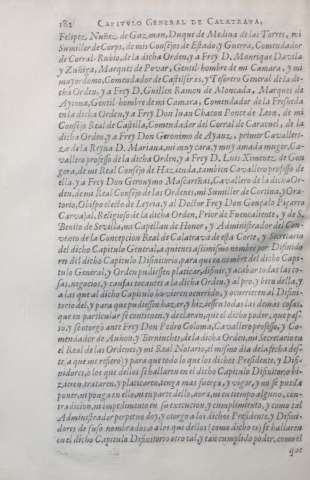 182 CAPITVLO GENERAL DE CALATRAVA,
Felipez, Nuñez de Guzman, Duque de Medina de las Torres, mi
Sumiller de Corps, de mis Consejos de Estado, y Guerra, Comendador
de Corral-Rubio, de la dicha Orden, y a Frey D. Manrique Davila
y Zuñiga, Marques de Povar, Gentil-hombre de mi Camara, y mi
mayordomo, Comendador de Castilseras, y Tesorero General de la di-
cha Orden, y a Frey D. Guillen Ramon de Moncada, Marques de
Aytona, Gentil-hombre de mi Camara, Comendador de la Fresneda
en la dicha Orden, y a Frey Don Iuan Chacon Ponce de Leon, de mi
Consejo Real de Castilla, Comendador del Corral de Caracuel, de la
dicha Orden, y a Frey Don Geronimo de Ayanz, primer Cavalleri-
zo de la Reyna D. Mariana, mi muy cara, y muy amada muger, Ca-
vallero professo de la dicha Orden, y a Frey D. Luis Ximenez de Gon
gora, de mi Real Consejo de Hazienda, tambien Cavallero professo de
ella, y a Frey Don Geronymo Mascareñas, Cavallero de la dicha Or-
den, de mi Real Consejo de las Ordenes, mi Sumiller de Cortina, y Ora-
torio, Obispo electo de Leyria, y al Doctor Frey Don Gonçalo Piçarro
Carvajal, Religioso de la dicha Orden, Prior de Fuencaliente, y de S.
Benito de Sevilla, mi Capellan de Honor, y Administrador del Con-
vento de la Concepcion Real de Calatrava desta Corte, y Secretario
del dicho Capitulo General, a quienes, assimismo nombre por Difinido
res del dicho Capitulo Difinitorio, para que en nombre del dicho Capi-
tulo General, y Orden pudiessen platicar, difinir, y acabar todas las co-
sas, negocios, y causas tocantes a la dicha Orden, y al pro, y bien della, y
a las que al dicho Capitulo huvieren ocurrido, y ocurriessen al Difini-
torio del, y para que pudiessen hazer, y hiziessen todas las demas cosas,
que en particular se contienen, y declaran, en el dicho poder, que pas-
sò, y se otorgò ante Frey Don Pedro Coloma, Cavallero professo, y Co-
mendador de Auñon, y Berninches, de la dicha Orden, mi Secretario en
el Real de las Ordenes, y mi Real Notario, el mismo dia de la fecha des-
te, a que me refiero) y para que todo lo que los dichos Presidente, y Difi-
nidores, o los que dellos se hallaren en el dicho Capitulo Difinitorio hi-
zieren, trataren, y platicaren, tenga mas fuerça, y vigor, y no se pueda
poner, ni ponga en ello, ni en parte dello, aora, ni en tiempo alguno, con-
tradicion, ni impedimento en su execucion, y cumplimiento, y como tal
Administrador perpetuo doy, y otorgo a los dichos Presidente, y Difini-
dores de suso nombrados, o a los que dellos (como dicho es) se hallaren
en el dicho Capitulo Difinitorio otro tal, y tan cumplido poder, como el
que